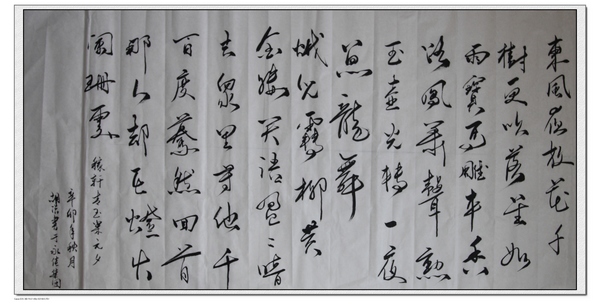 東風夜放花千
樹更吹落星如
雨寶馬雕車香
路鳳簫聲動
玉壺光轉一夜
魚龍舞
蛾兒雪柳黃
金縷笑語盈〻暗
去眾里尋他千
百度驀然回首
那人却在燈火
闌珊處
稼軒青玉案元夕
辛卯年秋月
書于永